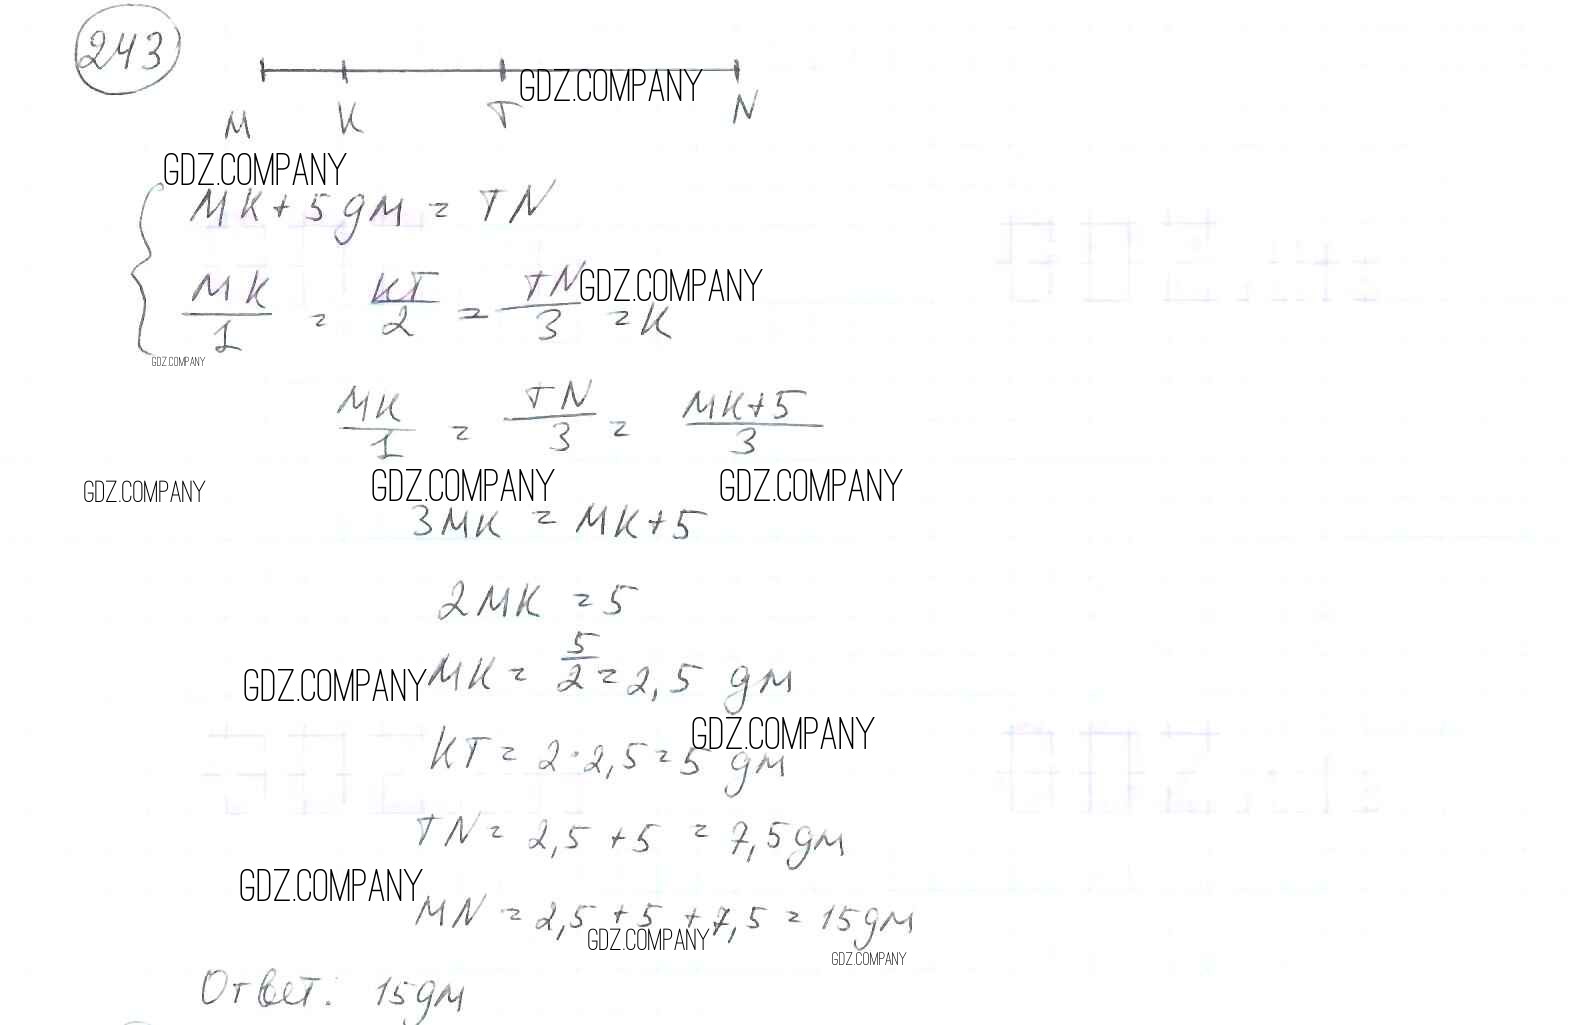 243
GDZ.COMPANY
M K T N
GDZ.COMPANY
MK + 5 дм = TN
MK/1 = KT/2 = TN/3 = K
GDZ.COMPANY
GDZ.COMPANY
MK/1 = TN/3 = MK+5/3
GDZ.COMPANY GDZ.COMPANY GDZ.COMPANY
3MK = MK+5
2MK = 5
GDZ.COMPANY
MK = 5/2 = 2,5 дм
GDZ.COMPANY
KT = 2·2,5 = 5 дм
TN = 2,5 + 5 = 7,5 дм
GDZ.COMPANY
MN = 2,5 + 5 + 7,5 = 15 дм
GDZ.COMPANY
GDZ.COMPANY
Ответ: 15 дм